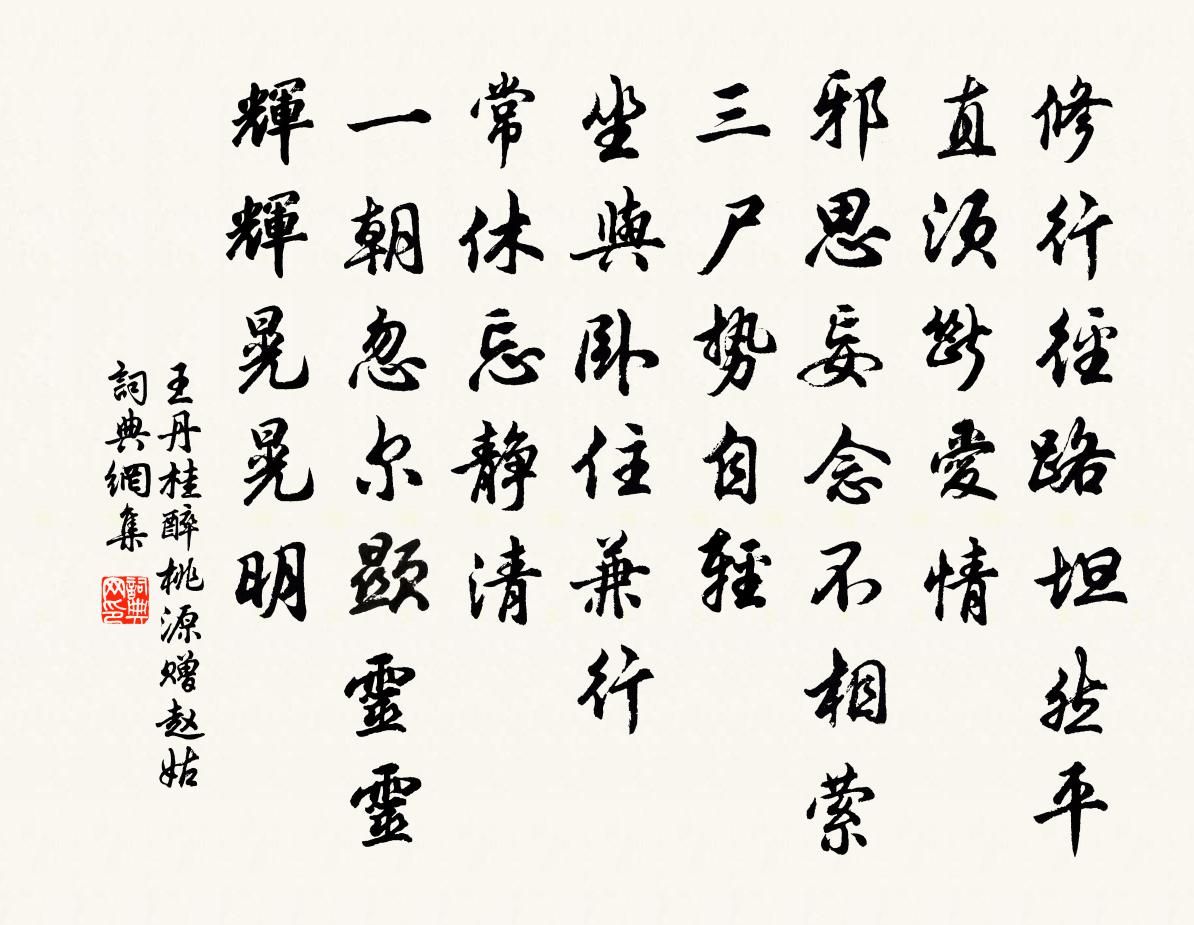 修行徑路坦然平
直須斷愛情
邪思妄念不相萦
三尸势自輕
坐與卧住兼行
常休忘静清
一朝忽尔顯靈靈
輝輝晃晃明
王丹桂醉桃源赠赵姑
詞典網集
詞典网印